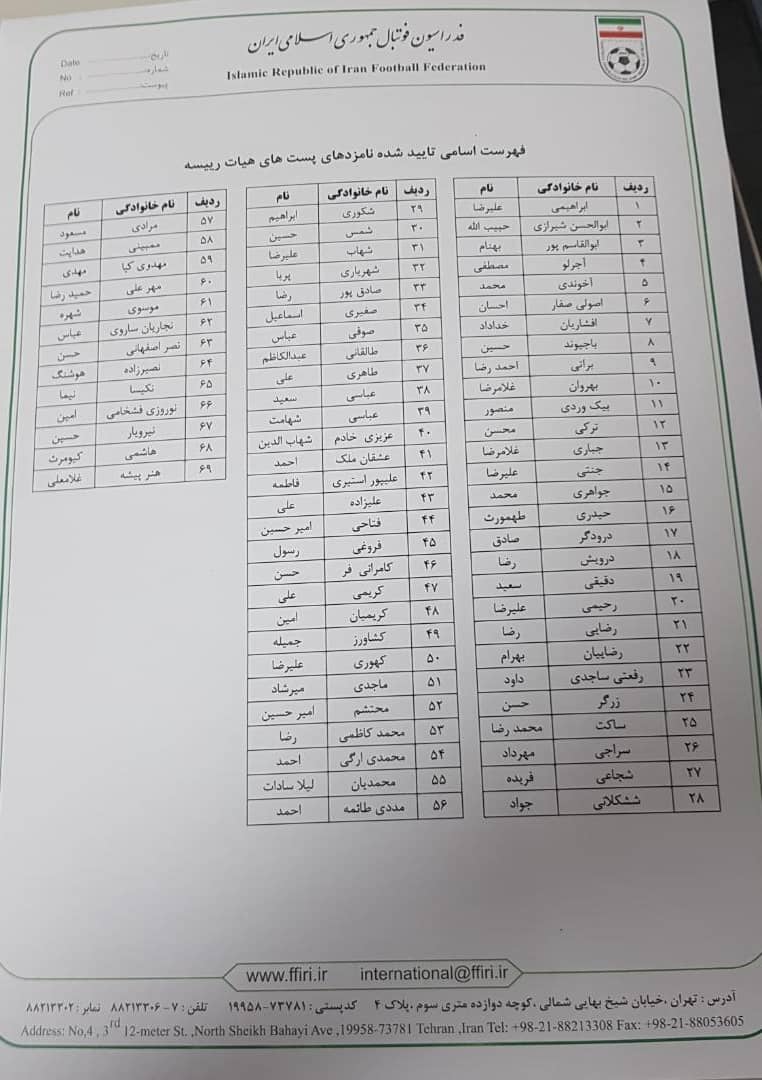 فدراسیون فوتبال جمهوری اسلامی ایران
Islamic Republic of Iran Football Federation
تاریخ: Date
شماره: No
پیوست: Ref :
فهرست اسامی تایید شده نامزدهای پست های هیات رییسه
ردیف نام خانوادگی نام
۱ ابراهیمی علیرضا
۲ ابوالحسن شیرازی حبیب الله
۳ ابوالقاسم پور بهنام
۴ آجرلو مصطفی
۵ آخوندی محمد
۶ اصولی صفار احسان
۷ افشاریان خداداد
۸ باجیوند حسین
۹ براتی احمد رضا
۱۰ بهروان غلامرضا
۱۱ بیک وردی منصور
۱۲ ترکی محسن
۱۳ جباری غلامرضا
۱۴ جنتی علیرضا
۱۵ جواهری محمد
۱۶ حیدری طهمورث
۱۷ درودگر صادق
۱۸ درویش رضا
۱۹ دقیقی سعید
۲۰ رحیمی علیرضا
۲۱ رضایی رضا
۲۲ رضاییان بهرام
۲۳ رفعتی ساجدی داود
۲۴ زرگر حسن
۲۵ ساکت محمد رضا
۲۶ سراجی مهرداد
۲۷ شجاعی فریده
۲۸ ششکلانی جواد
ردیف نام خانوادگی نام
۲۹ شکوری ابراهیم
۳۰ شمس حسین
۳۱ شهاب علیرضا
۳۲ شهریاری پریا
۳۳ صادق پور رضا
۳۴ صغیری اسماعیل
۳۵ صوفی عباس
۳۶ طالقانی عبدالکاظم
۳۷ طاهری علی
۳۸ عباسی سعید
۳۹ عباسی شهامت
۴۰ عزیزی خادم شهاب الدین
۴۱ عشقان ملک احمد
۴۲ علیپور استیری فاطمه
۴۳ علیزاده علی
۴۴ فتاحی امیر حسین
۴۵ فروغی رسول
۴۶ کامرانی فر حسن
۴۷ کریمی علی
۴۸ کریمیان امین
۴۹ کشاورز جمیله
۵۰ کهوری علیرضا
۵۱ ماجدی میرشاد
۵۲ محتشم امیر حسین
۵۳ محمد کاظمی رضا
۵۴ محمدی ارگی احمد
۵۵ محمدیان لیلا سادات
۵۶ مددی طائمه احمد
ردیف نام خانوادگی نام
۵۷ مرادی مسعود
۵۸ ممبینی هدایت
۵۹ مهدوی کیا مهدی
۶۰ مهر علی حمید رضا
۶۱ موسوی شهره
۶۲ نجاریان ساروی عباس
۶۳ نصر اصفهانی حسن
۶۴ نصیرزاده هوشنگ
۶۵ نکیسا نیما
۶۶ نوروزی فشخامی امین
۶۷ نیرویار حسین
۶۸ هاشمی کیومرث
۶۹ هنر پیشه غلامعلی
www.ffiri.ir international@ffiri.ir
آدرس : تهران ،خیابان شیخ بهایی شمالی ،کوچه دوازده متری سوم ،پلاک ۴ کدپستی : ۷۳۷۸۱-۱۹۹۵۸ تلفن : ۷ - ۸۸۲۱۳۳۰۶ نمابر : ۸۸۲۱۳۳۰۲
Address: No,4 , 3rd 12-meter St. ,North Sheikh Bahayi Ave ,19958-73781 Tehran ,Iran Tel: +98-21-88213308 Fax: +98-21-88053605